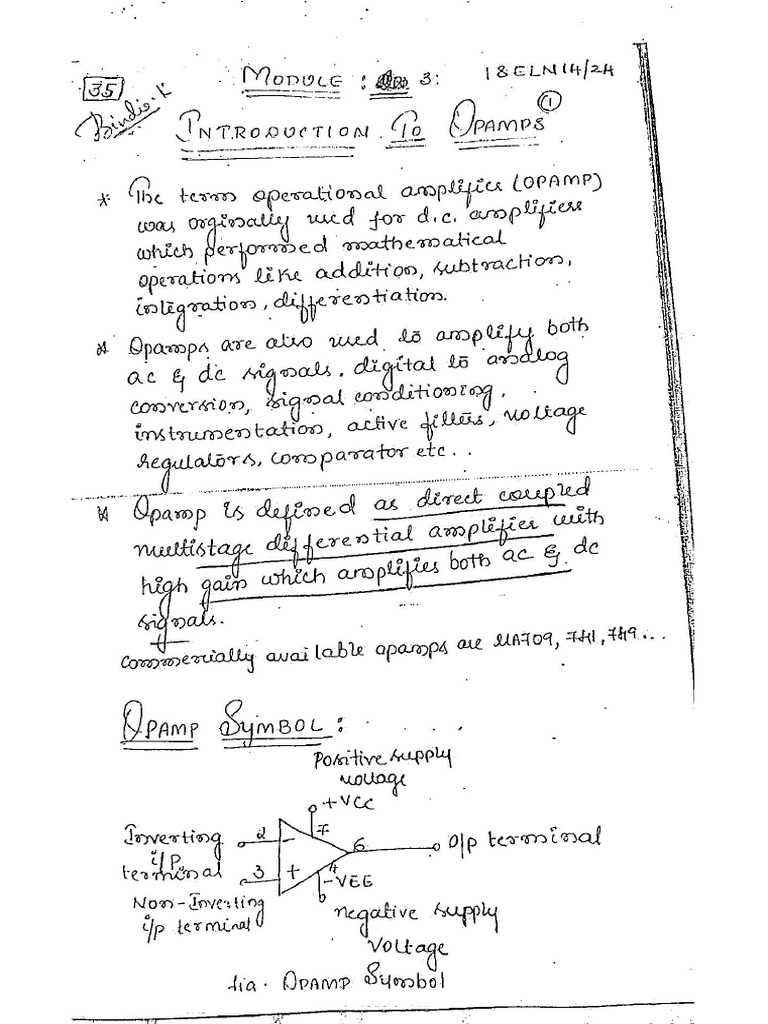 35
MODULE: 3: 18ELN14/24
Bindio.K
INTRODUCTION TO OPAMPS
1
* The term operational amplifier (OPAMP)
was orginally used for d.c. amplifiers
which performed mathematical
operations like addition, subtraction,
integration, differentiation.
* Opamps are also used to amplify both
ac & dc signals, digital to analog
conversion, signal conditioning,
instrumentation, active filters, voltage
regulators, comparator etc..
* Opamp is defined as direct coupled
multistage differential amplifier with
high gain which amplifies both ac & dc
signals.
commercially available opamps are MA709, 741, 749...
OPAMP SYMBOL:
Positive supply
voltage
+VCC
7
Inverting
i/p
terminal
2
-
6
O/p terminal
3
+
4
-VEE
Non-Inverting
i/p terminal
negative supply
voltage
fig. OPAMP Symbol